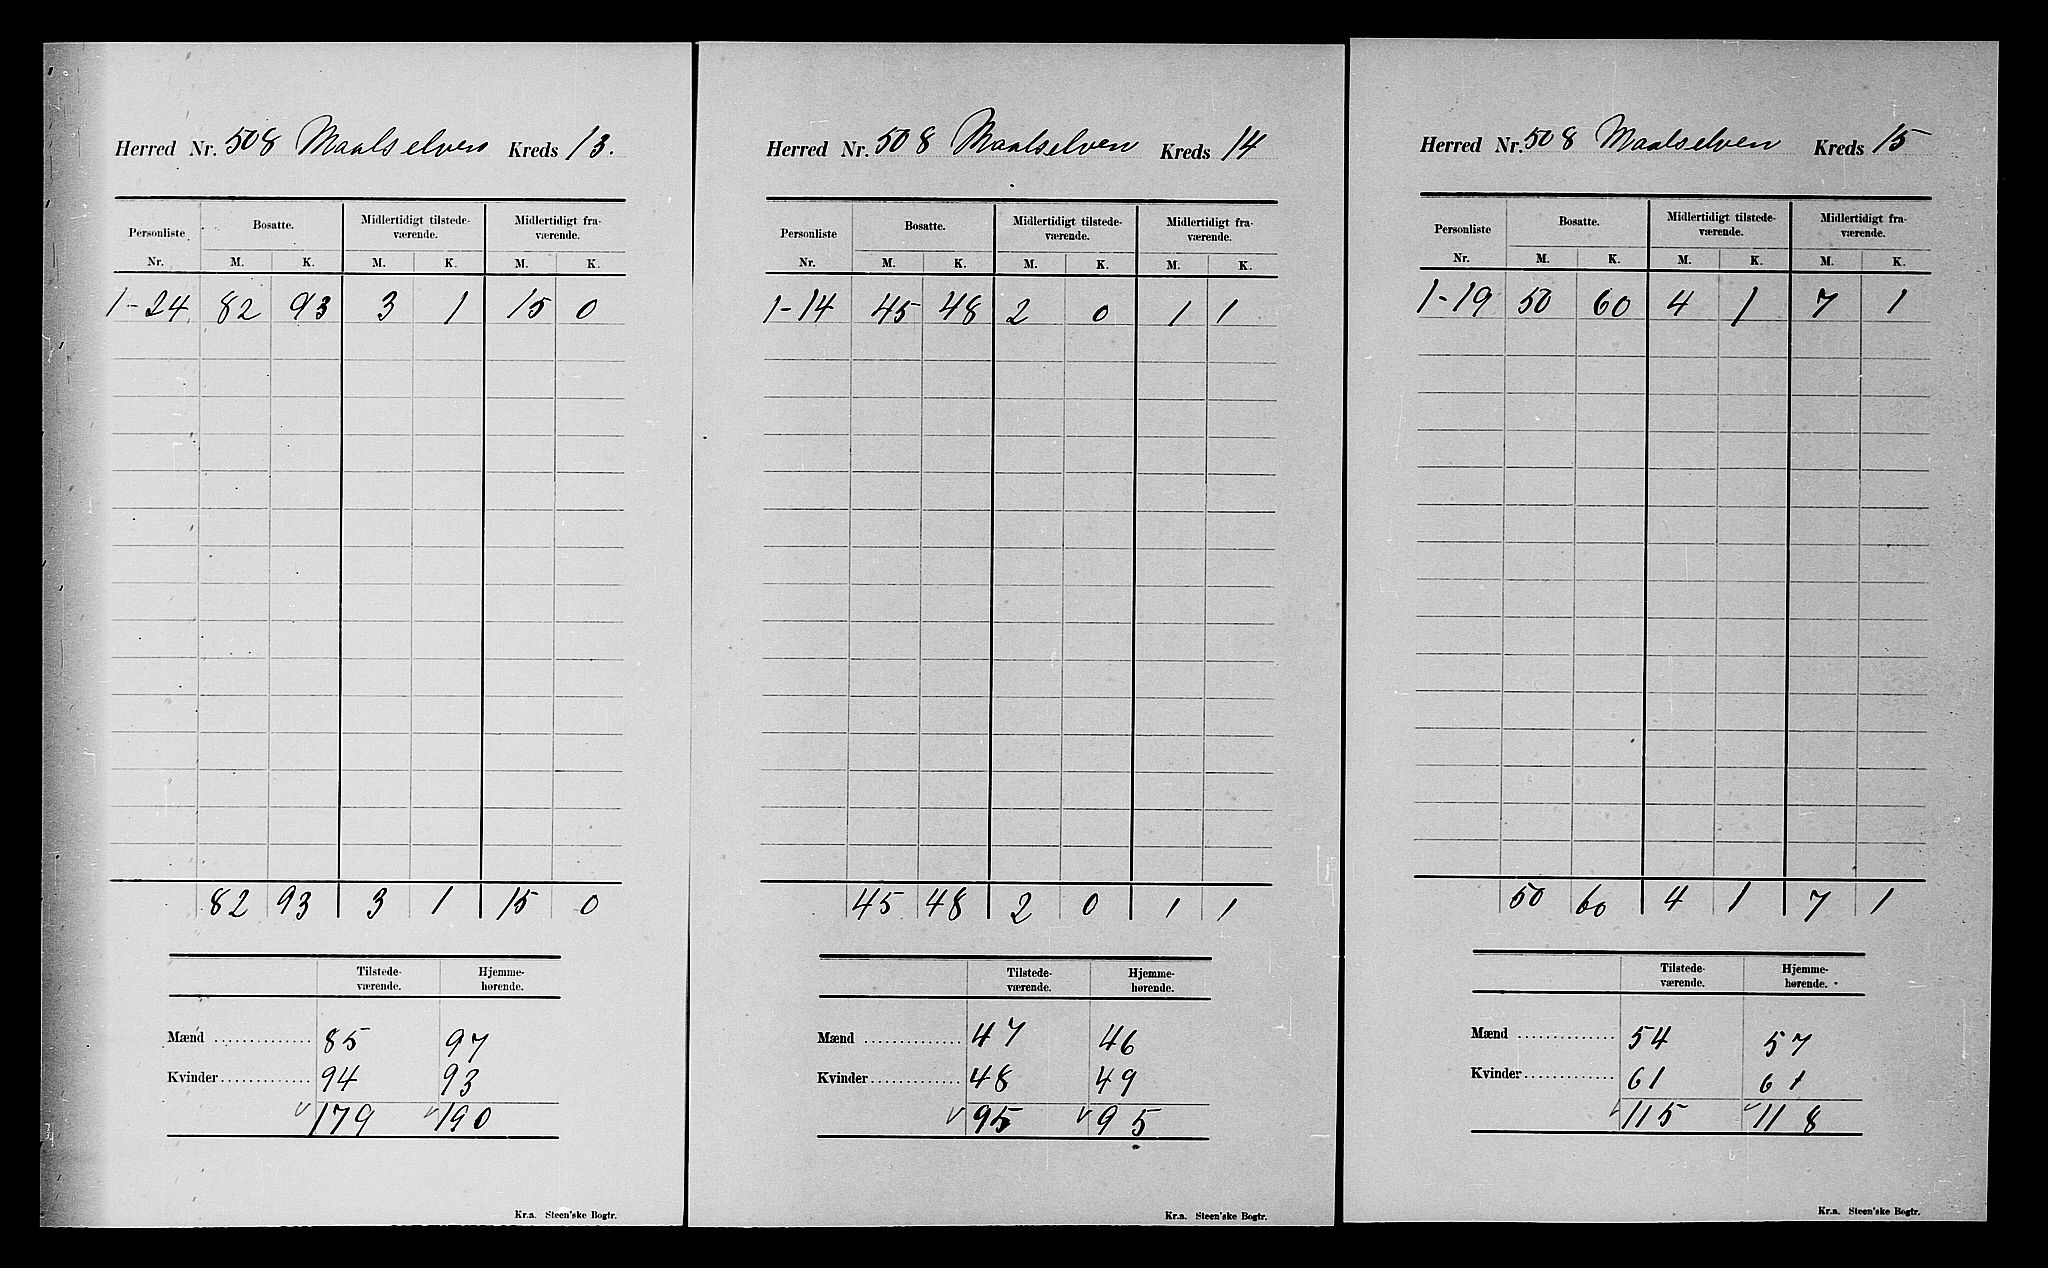 Herred Nr. 508 Maalselven Kreds 13.
Personliste Bosatte. Midlertidigt tilstede- Midlertidigt fra-
værende. værende.
Nr. M. K. M. K. M. K.
1-24 82 93 3 1 15 0
82 93 3 1 15 0
Tilstede- Hjemme-
værende. hørende.
Mænd 85 97
Kvinder 94 93
179 190
Kr.a. Steen'ske Bogtr.
Herred Nr. 508 Maalselven Kreds 14
Personliste Bosatte. Midlertidigt tilstede- Midlertidigt fra-
værende. værende.
Nr. M. K. M. K. M. K.
1-14 45 48 2 0 1 1
45 48 2 0 1 1
Tilstede- Hjemme-
værende. hørende.
Mænd 47 46
Kvinder 48 49
95 95
Kr.a. Steen'ske Bogtr.
Herred Nr. 508 Maalselven Kreds 15
Personliste Bosatte. Midlertidigt tilstede- Midlertidigt fra-
værende. værende.
Nr. M. K. M. K. M. K.
1-19 50 60 4 1 7 1
50 60 4 1 7 1
Tilstede- Hjemme-
værende. hørende.
Mænd 54 57
Kvinder 61 61
115 118
Kr.a. Steen'ske Bogtr.